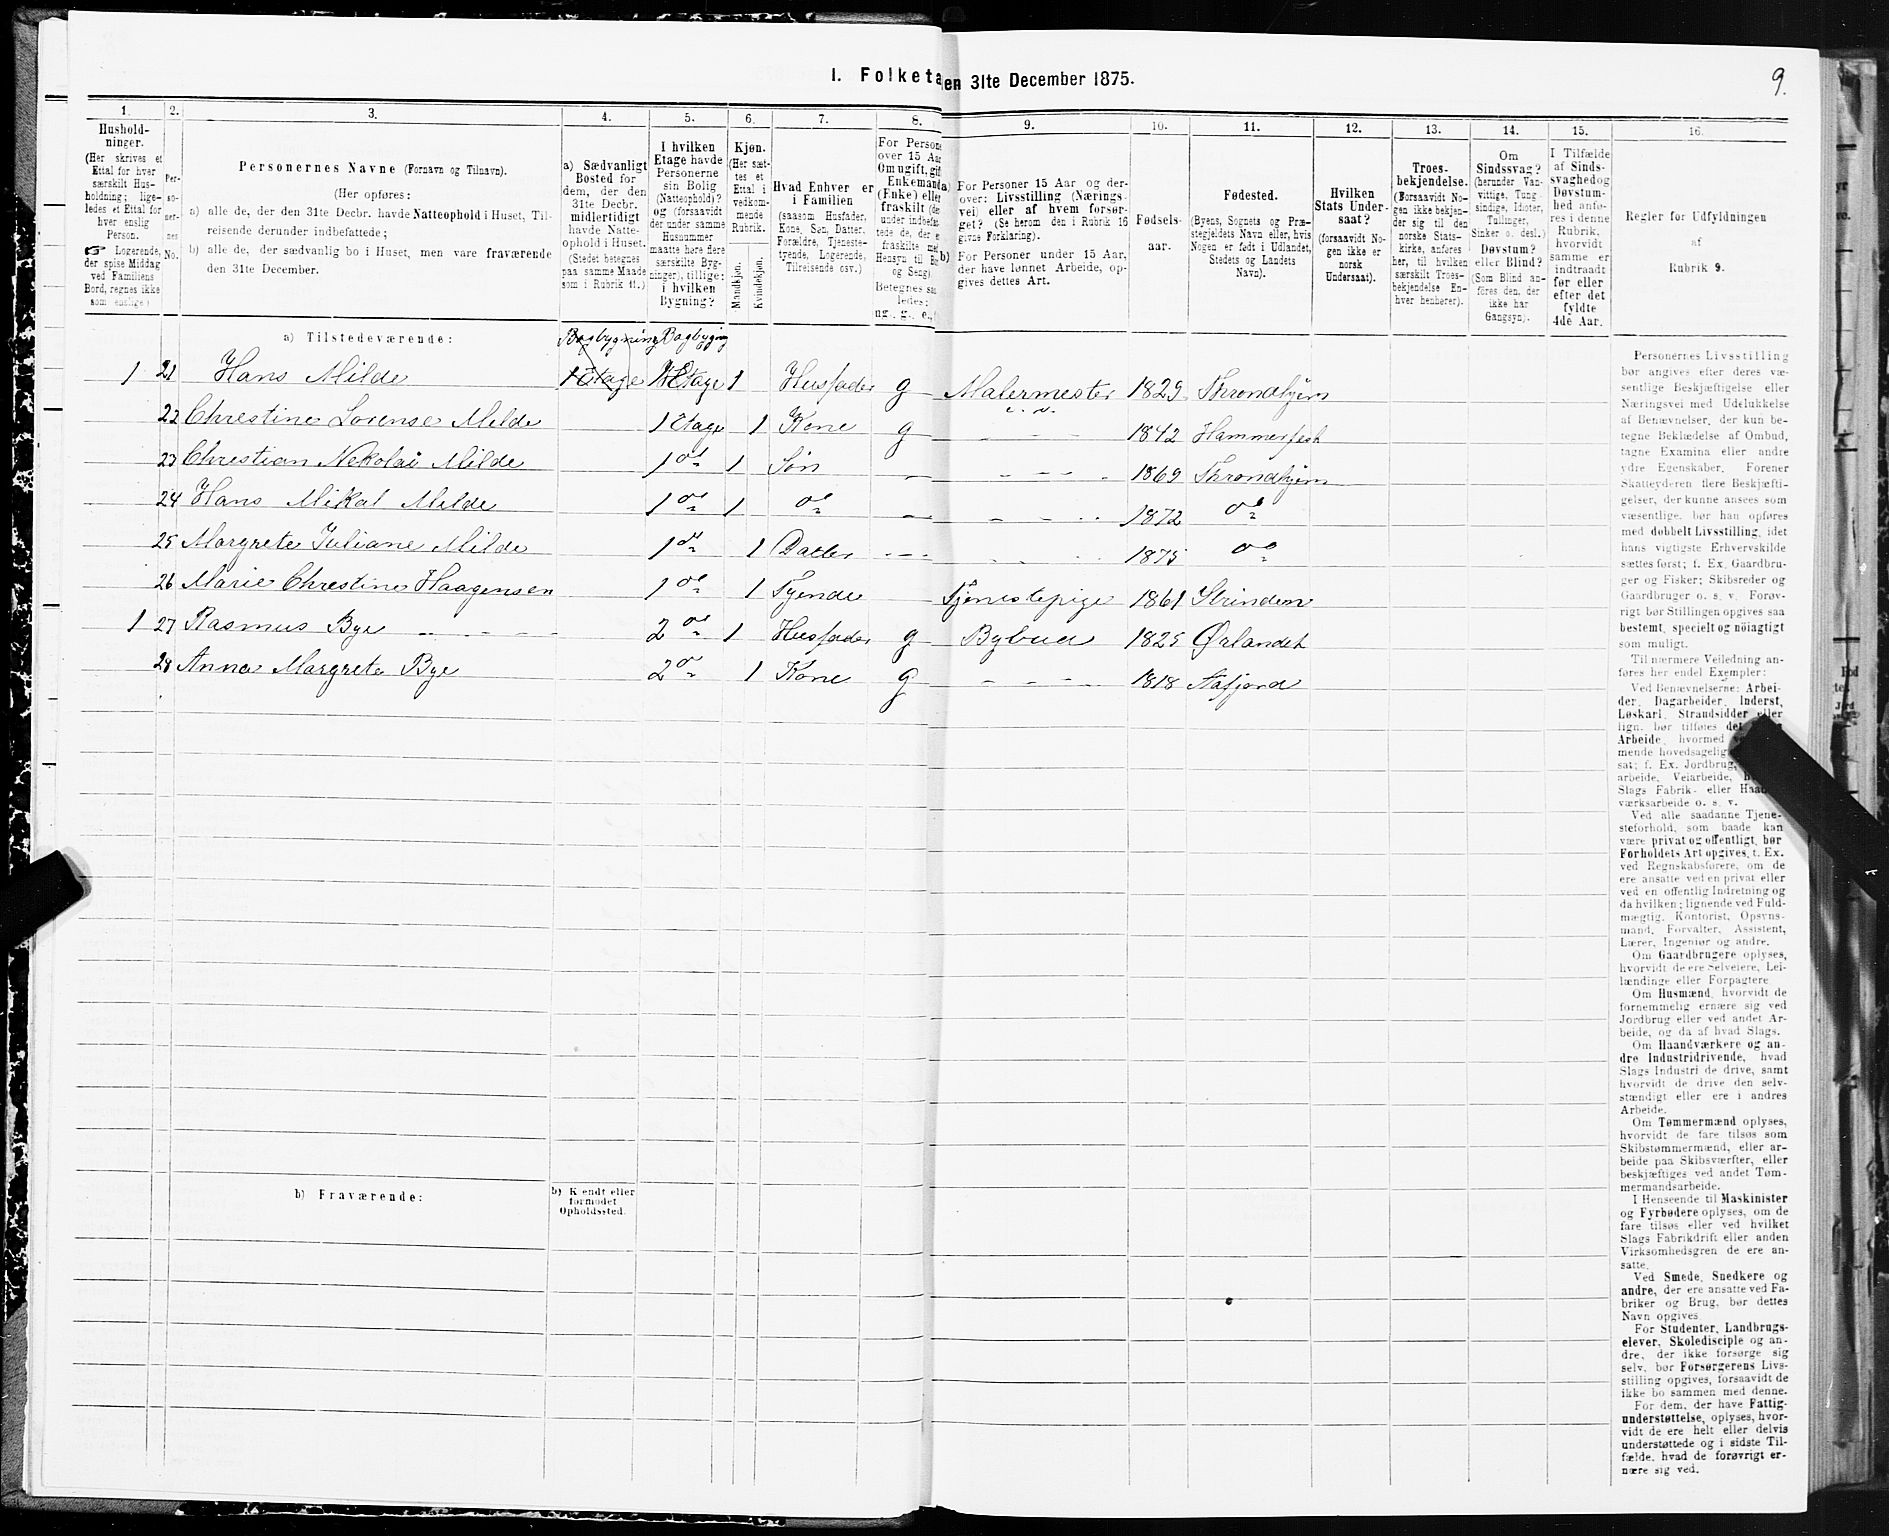 I. Folketa en 31te December 1875.
9.
1. 2. 3. 4. 5. 6. 7. 8. 9. 10. 11. 12. 13. 14. 15. 16.
Hushold-
ninger.
(Her skrives et
Ettal for hver
særskilt Hus-
holdning; lige-
ledes et Ettal for
hver enslig
Person.
☞ Logerende,
der spise Middag
ved Familiens
Bord, regnes ikke
som enslige)
Per-
so-
ner-
nes
No.
Personernes Navne (Fornavn og Tilnavn).
(Her opføres:
a) alle de, der den 31te Decbr. havde Natteophold i Huset, Til-
reisende derunder indbefattede;
b) alle de, der sædvanlig bo i Huset, men vare fraværende
den 31te December.
a) Sædvanligt
Bosted for
dem, der den
31te Decbr.
midlertidigt
havde Natte-
ophold i Huset.
(Stedet betegnes
paa samme Maade
som i Rubrik 11.)
I hvilken
Etage havde
Personerne
sin Bolig
(Natteophold)?
og (forsaavidt
der under samme
Husnummer
maatte høre flere
særskilte Byg-
ninger), tillige:
i hvilken
Bygning?
Kjøn.
(Her sæt-
tes et
Ettal i
vedkom-
mende
Rubrik.
Mandkjøn.
Kvindekjøn.
Hvad Enhver er
i Familien
(saasom Husfader,
Kone, Søn, Datter,
Forældre, Tjeneste-
tyende, Logerende,
Tilreisende osv.)
For Persone
over 15 Aar
Om ugift, gif
Enkemand
(Enke) eller
fraskilt (de
under indbefat-
tede de, der e
fraskilte med
Hensyn til Bo
og Seng)
Betegnes saa
ledes:
ug., g., e.,
a) For Personer 15 Aar og der-
over: Livsstilling (Nærings-
vei) eller af hvem forsør-
get? (Se herom den i Rubrik 16
givne Forklaring).
b) For Personer under 15 Aar,
der have lønnet Arbeide, op-
gives dettes Art.
Fødsels-
aar.
Fødested.
(Byens, Sognets og Præ-
stegjeldets Navn eller, hvis
Nogen er født i Udlandet,
Stedets og Landets
Navn).
Hvilken
Stats Under-
saat?
(forsaavidt No-
gen ikke er
norsk
Undersaat).
Troes-
bekjendelse.
(Forsaavidt No-
gen ikke bekjen-
der sig til den
norske Stats-
kirke, anføres
her, til hvilken
særskilt Troes-
bekjendelse En-
hver henhører).
Om
Sindssvag?
(herunder Van-
vittige, Tung-
sindige, Idioter,
Tullinger,
Sinker o. desl.)
Døvstum?
eller Blind?
(Som Blind an-
føres den, der
ikke har
Gangsyn).
I Tilfælde
af Sinds-
svaghed og
Døvstum-
hed anfø-
res i denne
Rubrik,
hvorvidt
samme er
indtraadt
før eller
efter det
fyldte
4de Aar.
Regler for Udfyldningen
af
Rubrik 9.
a) Tilstedeværende:
Bagbygning Bagbygning
1 21 Hans Milde 1 Etage 1 Etage 1 Husfader g Malermester 1829 Throndhjem
22 Chrestine Lorense Milde 1 Etage 1 Kone g 1842 Hammerfest
23 Chrestian Nekolai Milde 1 do 1 Søn 1869 Throndhjem
24 Hans Mikal Milde 1 do 1 do 1872 do
25 Margrete Juliane Milde 1 do 1 Datter 1875 do
26 Marie Chrestine Haagensen 1 do 1 Tyende Tjenestepige 1861 Strinden
1 27 Rasmus Bye 2 do 1 Husfader g Bybud 1825 Ørlandet
28 Anna Margrete Bye 2 do 1 Kone g 1818 Aafjord
b) Fraværende:
b) Kjendt eller
formodet
Opholdssted.
Personernes Livsstilling
bør angives efter deres væ-
sentlige Beskjæftigelse eller
Næringsvei med Udelukkelse
af Benævnelser, der kun be-
tegne Beklædelse af Ombud,
tagne Examina eller andre
ydre Egenskaber. Forener
Skatteyderen flere Beskjæfti-
gelser, der kunne ansees som
væsentlige, bør han opføres
med dobbelt Livsstilling, idet
hans vigtigste Erhvervskilde
sættes først; f. Ex. Gaardbru-
ger og Fisker; Skibsreder og
Gaardbruger o. s. v. Forøv-
rigt bør Stillingen opgives saa
bestemt, specielt og nöiagtigt
som muligt.
Til nærmere Veiledning an-
føres her endel Exempler:
Ved Benævnelserne: Arbei-
der, Dagarbeider, Inderst,
Løskarl, Strandsidder eller
lign. bør tilføies det
Arbeide, hvormed
mende hovedsagelig
sat; f. Ex. Jordbrug,
arbeide, Veiarbeide,
Slags Fabrik- eller Haand-
værksarbeide o. s. v.
Ved alle saadanne Tjene-
steforhold, som baade kan
være privat og offentligt, bør
Forholdets Art opgives, f. Ex.
ved Regnskabsførere, om de
ere ansatte ved en privat eller
ved en offentlig Indretning og
da hvilken; lignende ved Fuld-
mægtig, Kontorist, Opsyns-
mand, Forvalter, Assistent,
Lærer, Ingeniør og andre.
Om Gaardbrugere oplyses,
hvorvidt de ere Selveiere, Lei-
lændinge eller Forpagtere
Om Husmænd, hvorvidt de
fornemmelig ernære sig ved
Jordbrug eller ved andet Ar-
beide, og da af hvad Slags.
Om Haandværkere og an-
dre Industridrivende, hvad
Slags Industri de drive, samt
hvorvidt de drive den selv-
stændigt eller ere i andres
Arbeide.
Om Tømmermænd oplyses,
hvorvidt de fare tilsøs som
Skibstømmermænd, eller ar-
beide paa Skibsværfter, eller
beskjæftiges ved andet Tøm-
mermandsarbeide.
I Henseende til Maskinister
og Fyrbødere oplyses, om de
fare tilsøs eller ved hvilket
Slags Fabrikdrift eller anden
Virksomhedsgren de ere an-
satte.
Ved Smede, Snedkere og
andre, der ere ansatte ved Fa-
briker og Brug, bør dettes
Navn opgives
For Studenter, Landbrugs-
elever, Skoledisciple og an-
dre, der ikke forsørge sig
selv, bør Forsørgerens Livs-
stilling opgives, forsaavidt de
ikke bo sammen med denne.
For dem, der have Fattig-
understøttelse, oplyses, hvor-
vidt de ere helt eller delvis
understøttede og i sidste Til-
fælde, hvad de forøvrigt er-
nære sig ved.